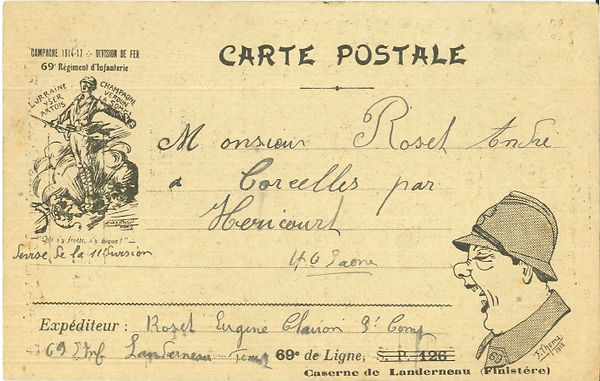 CAMPAGNE 1914-17 - DIVISION DE FER
69e Régiment d'Infanterie
CARTE POSTALE
LORRAINE
YSER
ARTOIS
CHAMPAGNE
VERDUN
SOMME
Monsieur Roset Andre
a Corcelles par
Hericourt
Hte Saone
"Qui s'y frotte, s'y pique!"
devise de la 11e division
Expéditeur : Roset Eugine Clairon 3e Comp
69 Inf Landerneau
69e de Ligne, S. P. 126
Caserne de Landerneau (Finistère)
69